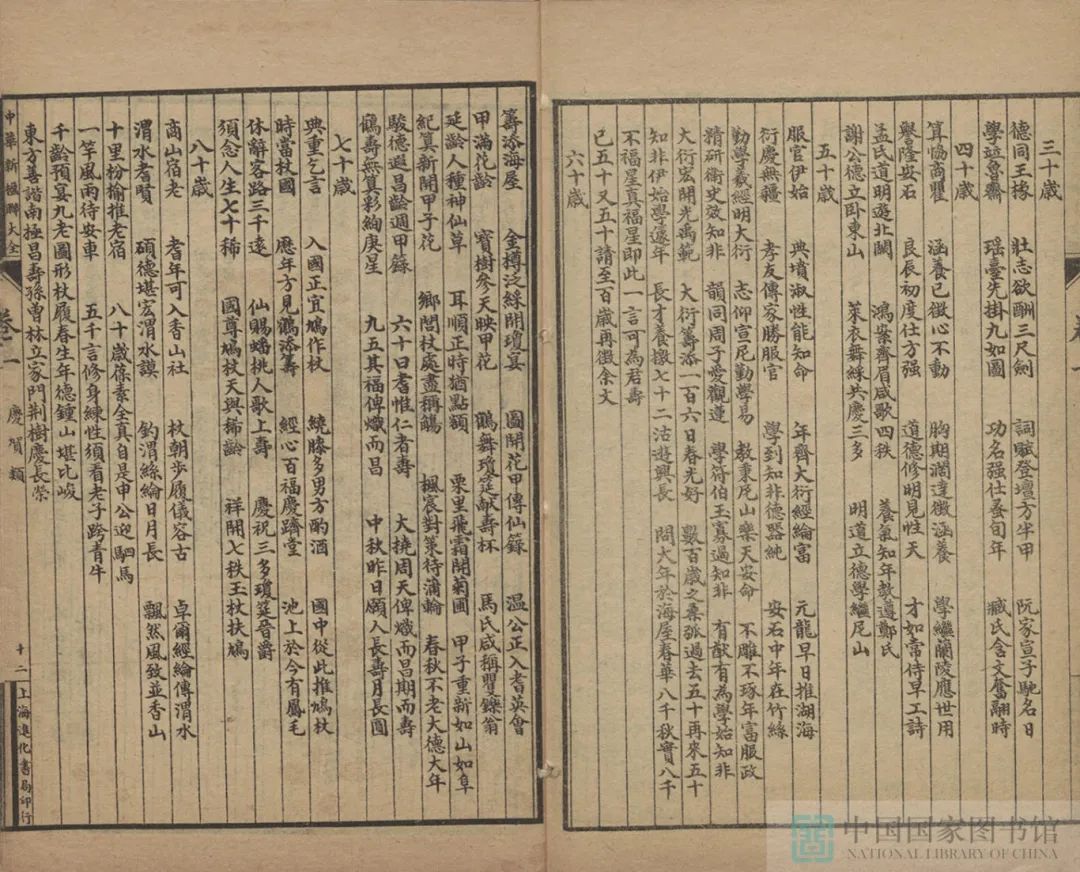 三十歲
德同王掾　壯志欲酬三尺劍　詞賦登壇方半甲　阮家宣子馳名日
學逛魯齋　瑤臺先掛九如圖　功名强仕甚旬年　臧氏含文奮翮時
四十歲
算協商瞿　涵養已徵心不動　胸期濶達微涵養　學繼蘭陵應世用
譽隆安石　良辰初度仕方强　道德修明見性天　才如常侍早工詩
孟氏道明遊北闕　鴻案齊眉咸歌四秩　養氣知年教遵鄒氏
謝公德立臥東山　萊衣舞綵共慶三多　明道立德學繼尼山
五十歲
服官伊始　典墳淑性能知命　年齊大衍經綸富　元龍早日推湖海
衍慶無疆　孝友傳家勝服官　學到知非德器純　安石中年在竹絲
勤學羲經明大衍　志仰宣尼勤學易　教秉尼山樂天安命　不雕不琢年富服政
精研衞史效知非　韻同周子愛觀蓮　學符伯玉寡過知非　有猷有為學始知非
大衍宏開光禹範　大衍籌添一百六日春光好　數百歲之桑弧過去五十再來五十
知非伊始學蘧年　長才養擬七十二沽遊興長　問大年於海屋春華八千秋實八千
不福星真福星即此一言可為君壽
已五十又五十請至百歲再徵余文
六十歲
籌添海屋　金樽泛綠開瓊宴　圖開花甲傳仙籙　温公正入耆英會
甲滿花齡　寶樹參天映甲花　鶴舞瓊筵献壽杯　馬氏咸稱矍鑠翁
延齡人種神仙草　耳順正時猶點額　栗里飛霜開菊圃　甲子重新如山如阜
紀算新開甲子花　鄉閭杖處盡稱觴　楓宸對策待蒲輪　春秋不老大德大年
駿德遐昌齡週甲籙　六十曰耆惟仁者壽　大撓周天俾熾而昌期而壽
鶴壽無算彩絢庚星　九五其福俾熾而昌　中秋昨日願人長壽月長圓
七十歲
典重乞言　入國正宜鳩作杖　繞膝多男方酌酒　國中從此推鳩杖
時當杖國　歷年方見鶴添籌　經心百福慶躋堂　池上於今有鳳毛
休辭客路三千遠　仙賜蟠桃人歌上壽　慶祝三多瓊筵晉爵
須念人生七十稀　國尊鳩杖天與稀齡　祥開七秩玉杖扶鳩
八十歲
商山宿老　耆年可入香山社　杖朝步履儀容古　卓爾經綸傳渭水
渭水耆賢　碩德堪宏渭水謨　釣渭絲綸日月長　飄然風致並香山
十里枌榆推老宿　八十歲葆素全真自是申公迎駟馬
一竿風雨待安車　五千言修身練性須看老子跨青牛
千齡預宴九老圖形杖履春生年德鍾山堪比峻
東方善謔南極昌壽孫曾林立家門荆樹慶長榮
中華新楹聯大全　卷一　慶賀類　十二　上海進化書局印行
中国国家图书馆
NATIONAL LIBRARY OF CHINA